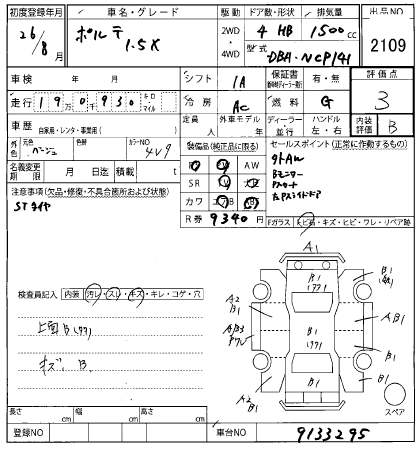 初度登録年月 車名・グレード 駆動 ドア数・形状 排気量 出品NO
26/8月 ポルテ 1.5X 2WD・4WD 4 HB 1500cc 2109
型式 DBA-NCP141
車検 年 月 シフト 1A 保証書 有・無 評価点 3
走行 19万0千930 キロ・マイル 冷房 AC 燃料 G
車歴 自家用・レンタ・事業用( ) 定員 人 外車モデル 年 ディーラー・並行 ハンドル 左・右 内装評価 B
外色 元色 ベージュ 色替 カラーNO 4V9 装備品(純正品に限る) セールスポイント(正常に作動するもの)
名義変更期限 月 日迄 積載 t AW
SR
カワ
R券 9340円
外AW
Bモニター
左Pスライドドア
注意事項(欠品・修復・不具合箇所および状態)
STタイヤ
Fガラス 飛ビ石・キズ・ヒビ・ワレ・リペア跡
検査員記入 内装 汚レ・スレ・キズ・キレ・コゲ・穴
A1
B1
A2
B1
A B1
B1
B1
A2
B1
A B1
B1
スペア
長さ cm 幅 cm 高さ cm
登録NO 車台NO 9133295